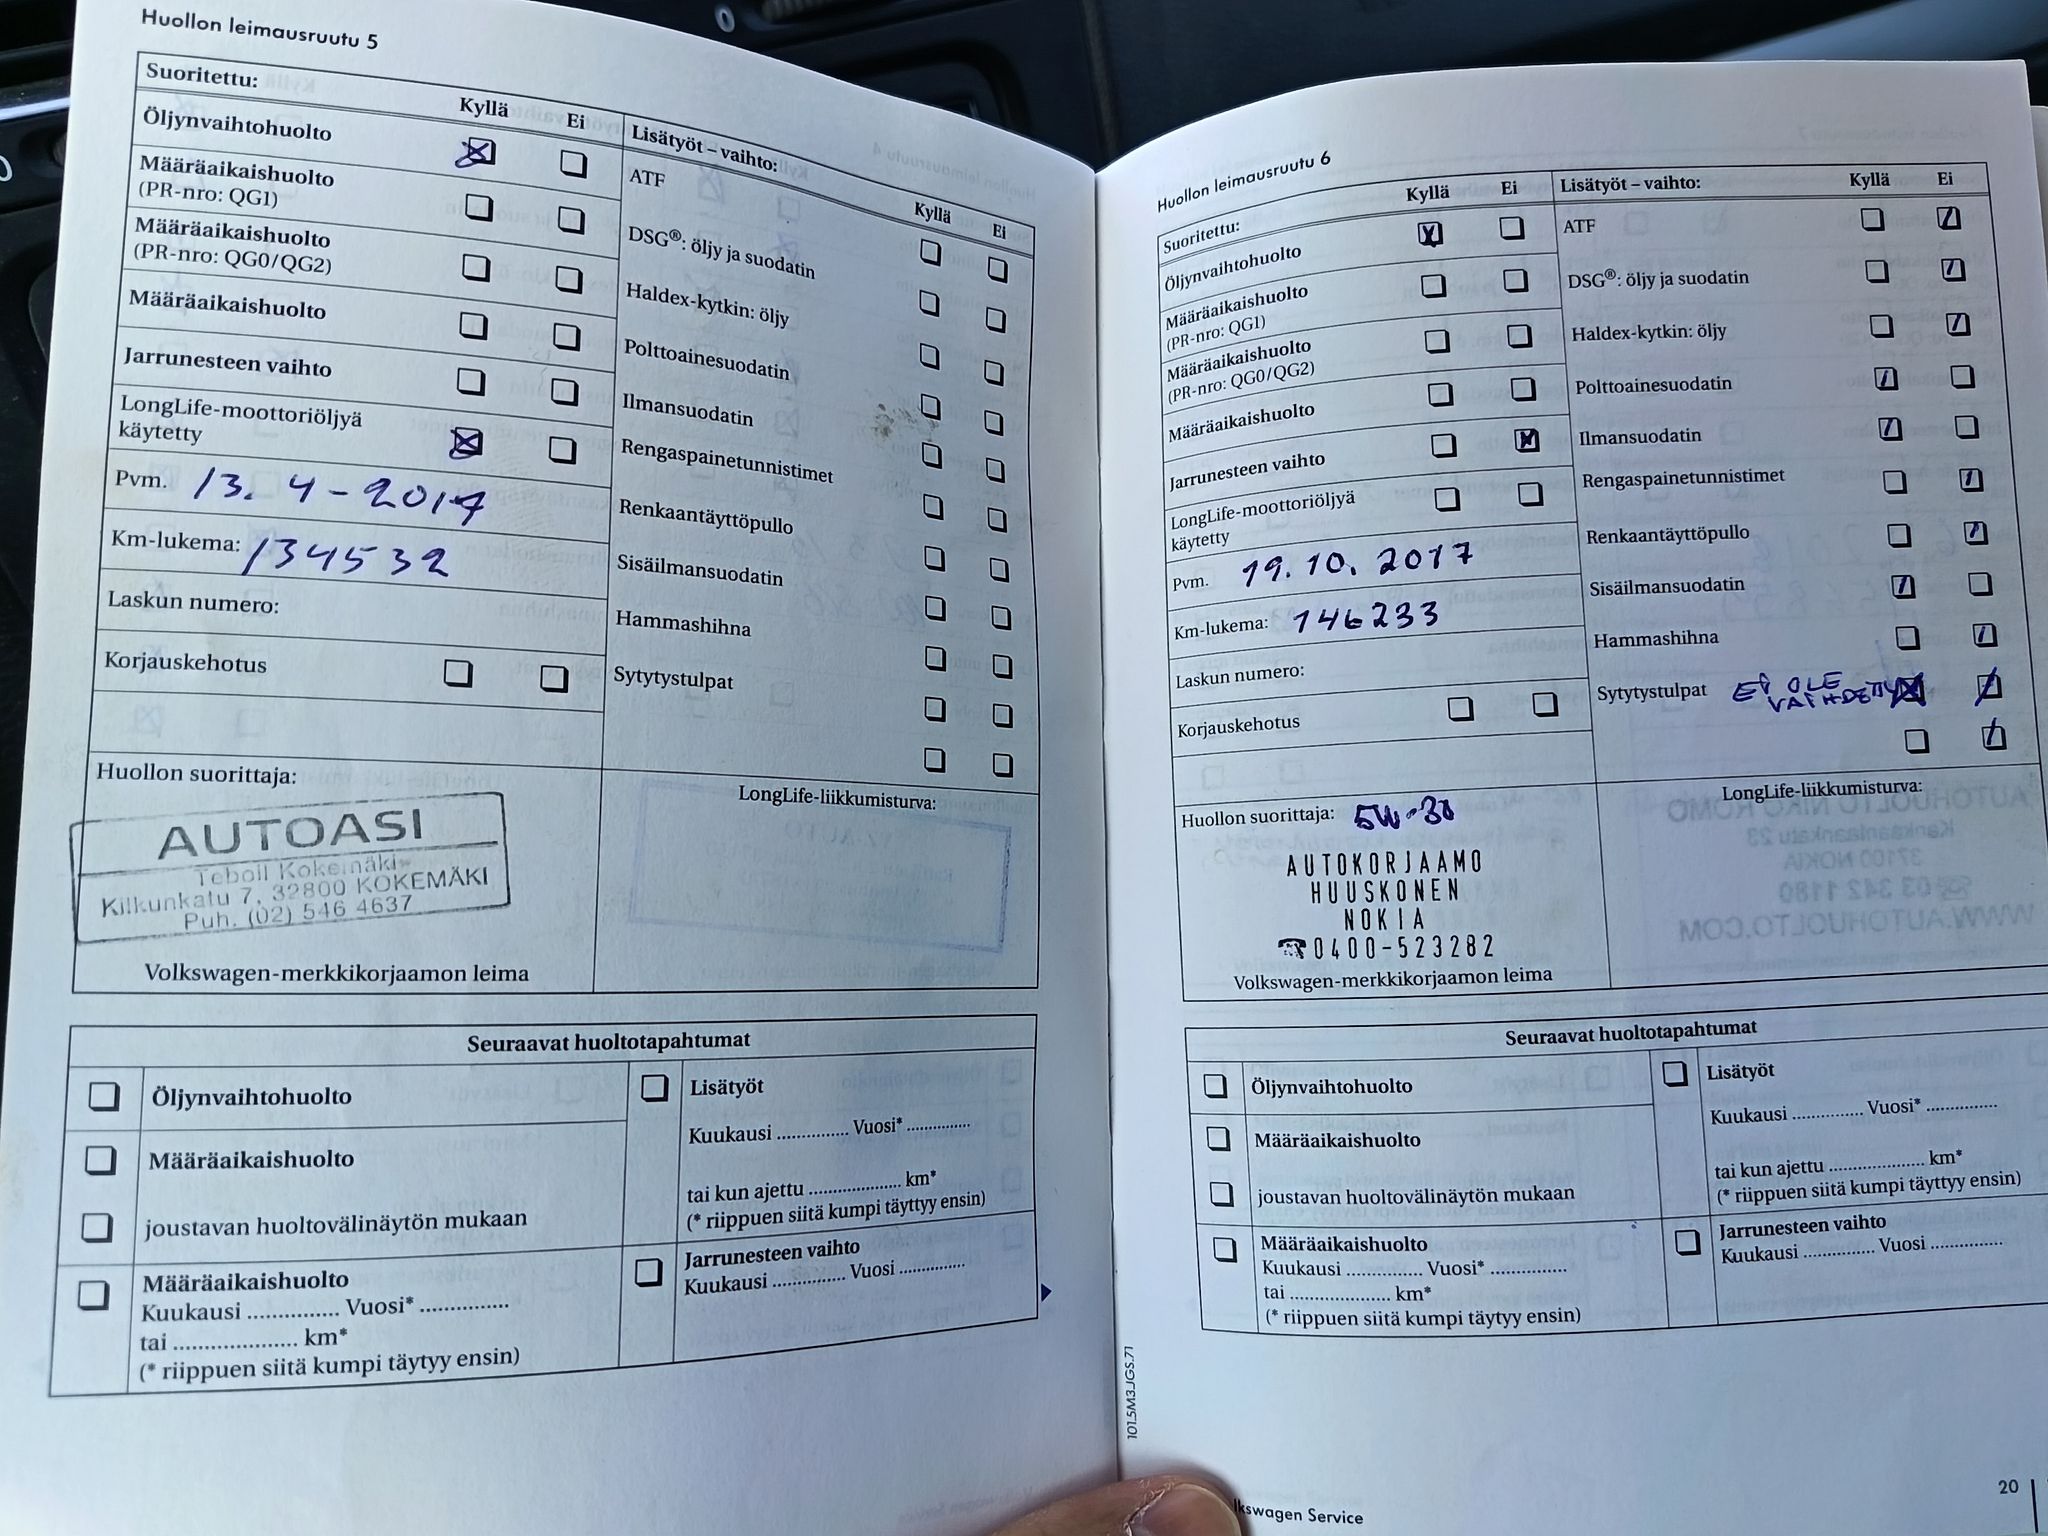 Huollon leimausruutu 5
Suoritettu:
Kyllä
Ei
Öljynvaihtohuolto
Määräaikaishuolto
(PR-nro: QG1)
Määräaikaishuolto
(PR-nro: QG0/QG2)
Määräaikaishuolto
Jarrunesteen vaihto
LongLife-moottoriöljyä
käytetty
Pvm. 13. 4 - 2017
Km-lukema: 134532
Laskun numero:
Korjauskehotus
Lisätyöt – vaihto:
Kyllä
Ei
ATF
DSG®: öljy ja suodatin
Haldex-kytkin: öljy
Polttoainesuodatin
Ilmansuodatin
Rengaspainetunnistimet
Renkaantäyttöpullo
Sisäilmansuodatin
Hammashihna
Sytytystulpat
Huollon suorittaja:
AUTOASI
Teboil Kokemäki
Kilkunkatu 7, 32800 KOKEMÄKI
Puh. (02) 546 4637
Volkswagen-merkkikorjaamon leima
LongLife-liikkumisturva:
Seuraavat huoltotapahtumat
Öljynvaihtohuolto
Määräaikaishuolto
joustavan huoltovälinäytön mukaan
Määräaikaishuolto
Kuukausi ............... Vuosi* ..............
tai .................... km*
(* riippuen siitä kumpi täytyy ensin)
Lisätyöt
Kuukausi ............... Vuosi* ..............
tai kun ajettu .................... km*
(* riippuen siitä kumpi täyttyy ensin)
Jarrunesteen vaihto
Kuukausi ............... Vuosi ..............
Huollon leimausruutu 6
Suoritettu:
Kyllä
Ei
Öljynvaihtohuolto
Määräaikaishuolto
(PR-nro: QG1)
Määräaikaishuolto
(PR-nro: QG0/QG2)
Määräaikaishuolto
Jarrunesteen vaihto
LongLife-moottoriöljyä
käytetty
Pvm. 19. 10. 2017
Km-lukema: 146233
Laskun numero:
Korjauskehotus
Lisätyöt – vaihto:
Kyllä
Ei
ATF
DSG®: öljy ja suodatin
Haldex-kytkin: öljy
Polttoainesuodatin
Ilmansuodatin
Rengaspainetunnistimet
Renkaantäyttöpullo
Sisäilmansuodatin
Hammashihna
Sytytystulpat EI OLE
VAIHDETTU
Huollon suorittaja: 5W-30
AUTOKORJAAMO
HUUSKONEN
NOKIA
☎0400-523282
Volkswagen-merkkikorjaamon leima
LongLife-liikkumisturva:
Seuraavat huoltotapahtumat
Öljynvaihtohuolto
Määräaikaishuolto
joustavan huoltovälinäytön mukaan
Määräaikaishuolto
Kuukausi ............... Vuosi* ..............
tai .................... km*
(* riippuen siitä kumpi täyttyy ensin)
Lisätyöt
Kuukausi ............... Vuosi* ..............
tai kun ajettu .................... km*
(* riippuen siitä kumpi täyttyy ensin)
Jarrunesteen vaihto
Kuukausi ............... Vuosi ..............
101.5M3.JGS.71
lkswagen Service
20